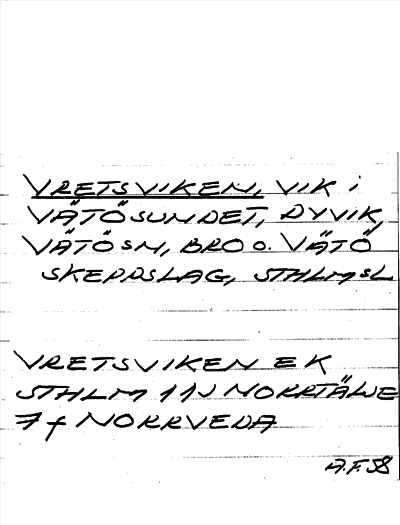 VRETSVIKEN, VIK i
VÄTÖSUNDET, DYVIK,
VÄTÖ SN, BRO O. VÄTÖ
SKEPPSLAG, STHLMSL
VRETSVIKEN E K
STHLM 11N NORRTÄLJE
7 f NORRVEDA
A.F. 58